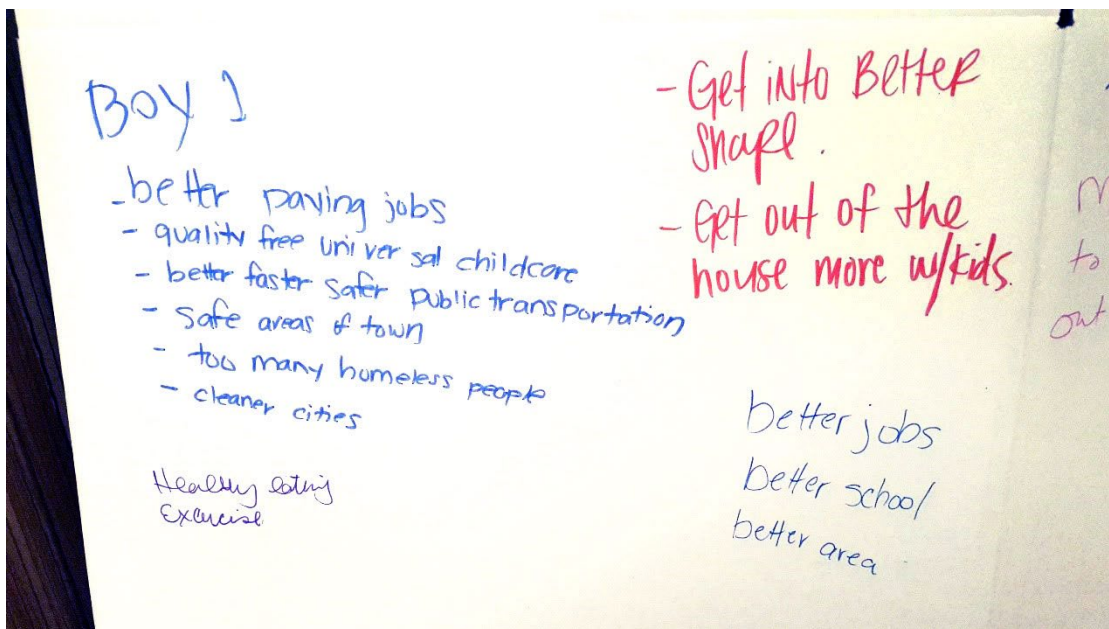 BOY 1
- better paying jobs
- quality free universal childcare
- better faster safer public transportation
- safe areas of town
- too many homeless people
- cleaner cities
Healthy eating
Exercise
- Get iNto BetteR
shape.
- Get out of the
house more w/kids.
better jobs
better school
better area
to
out